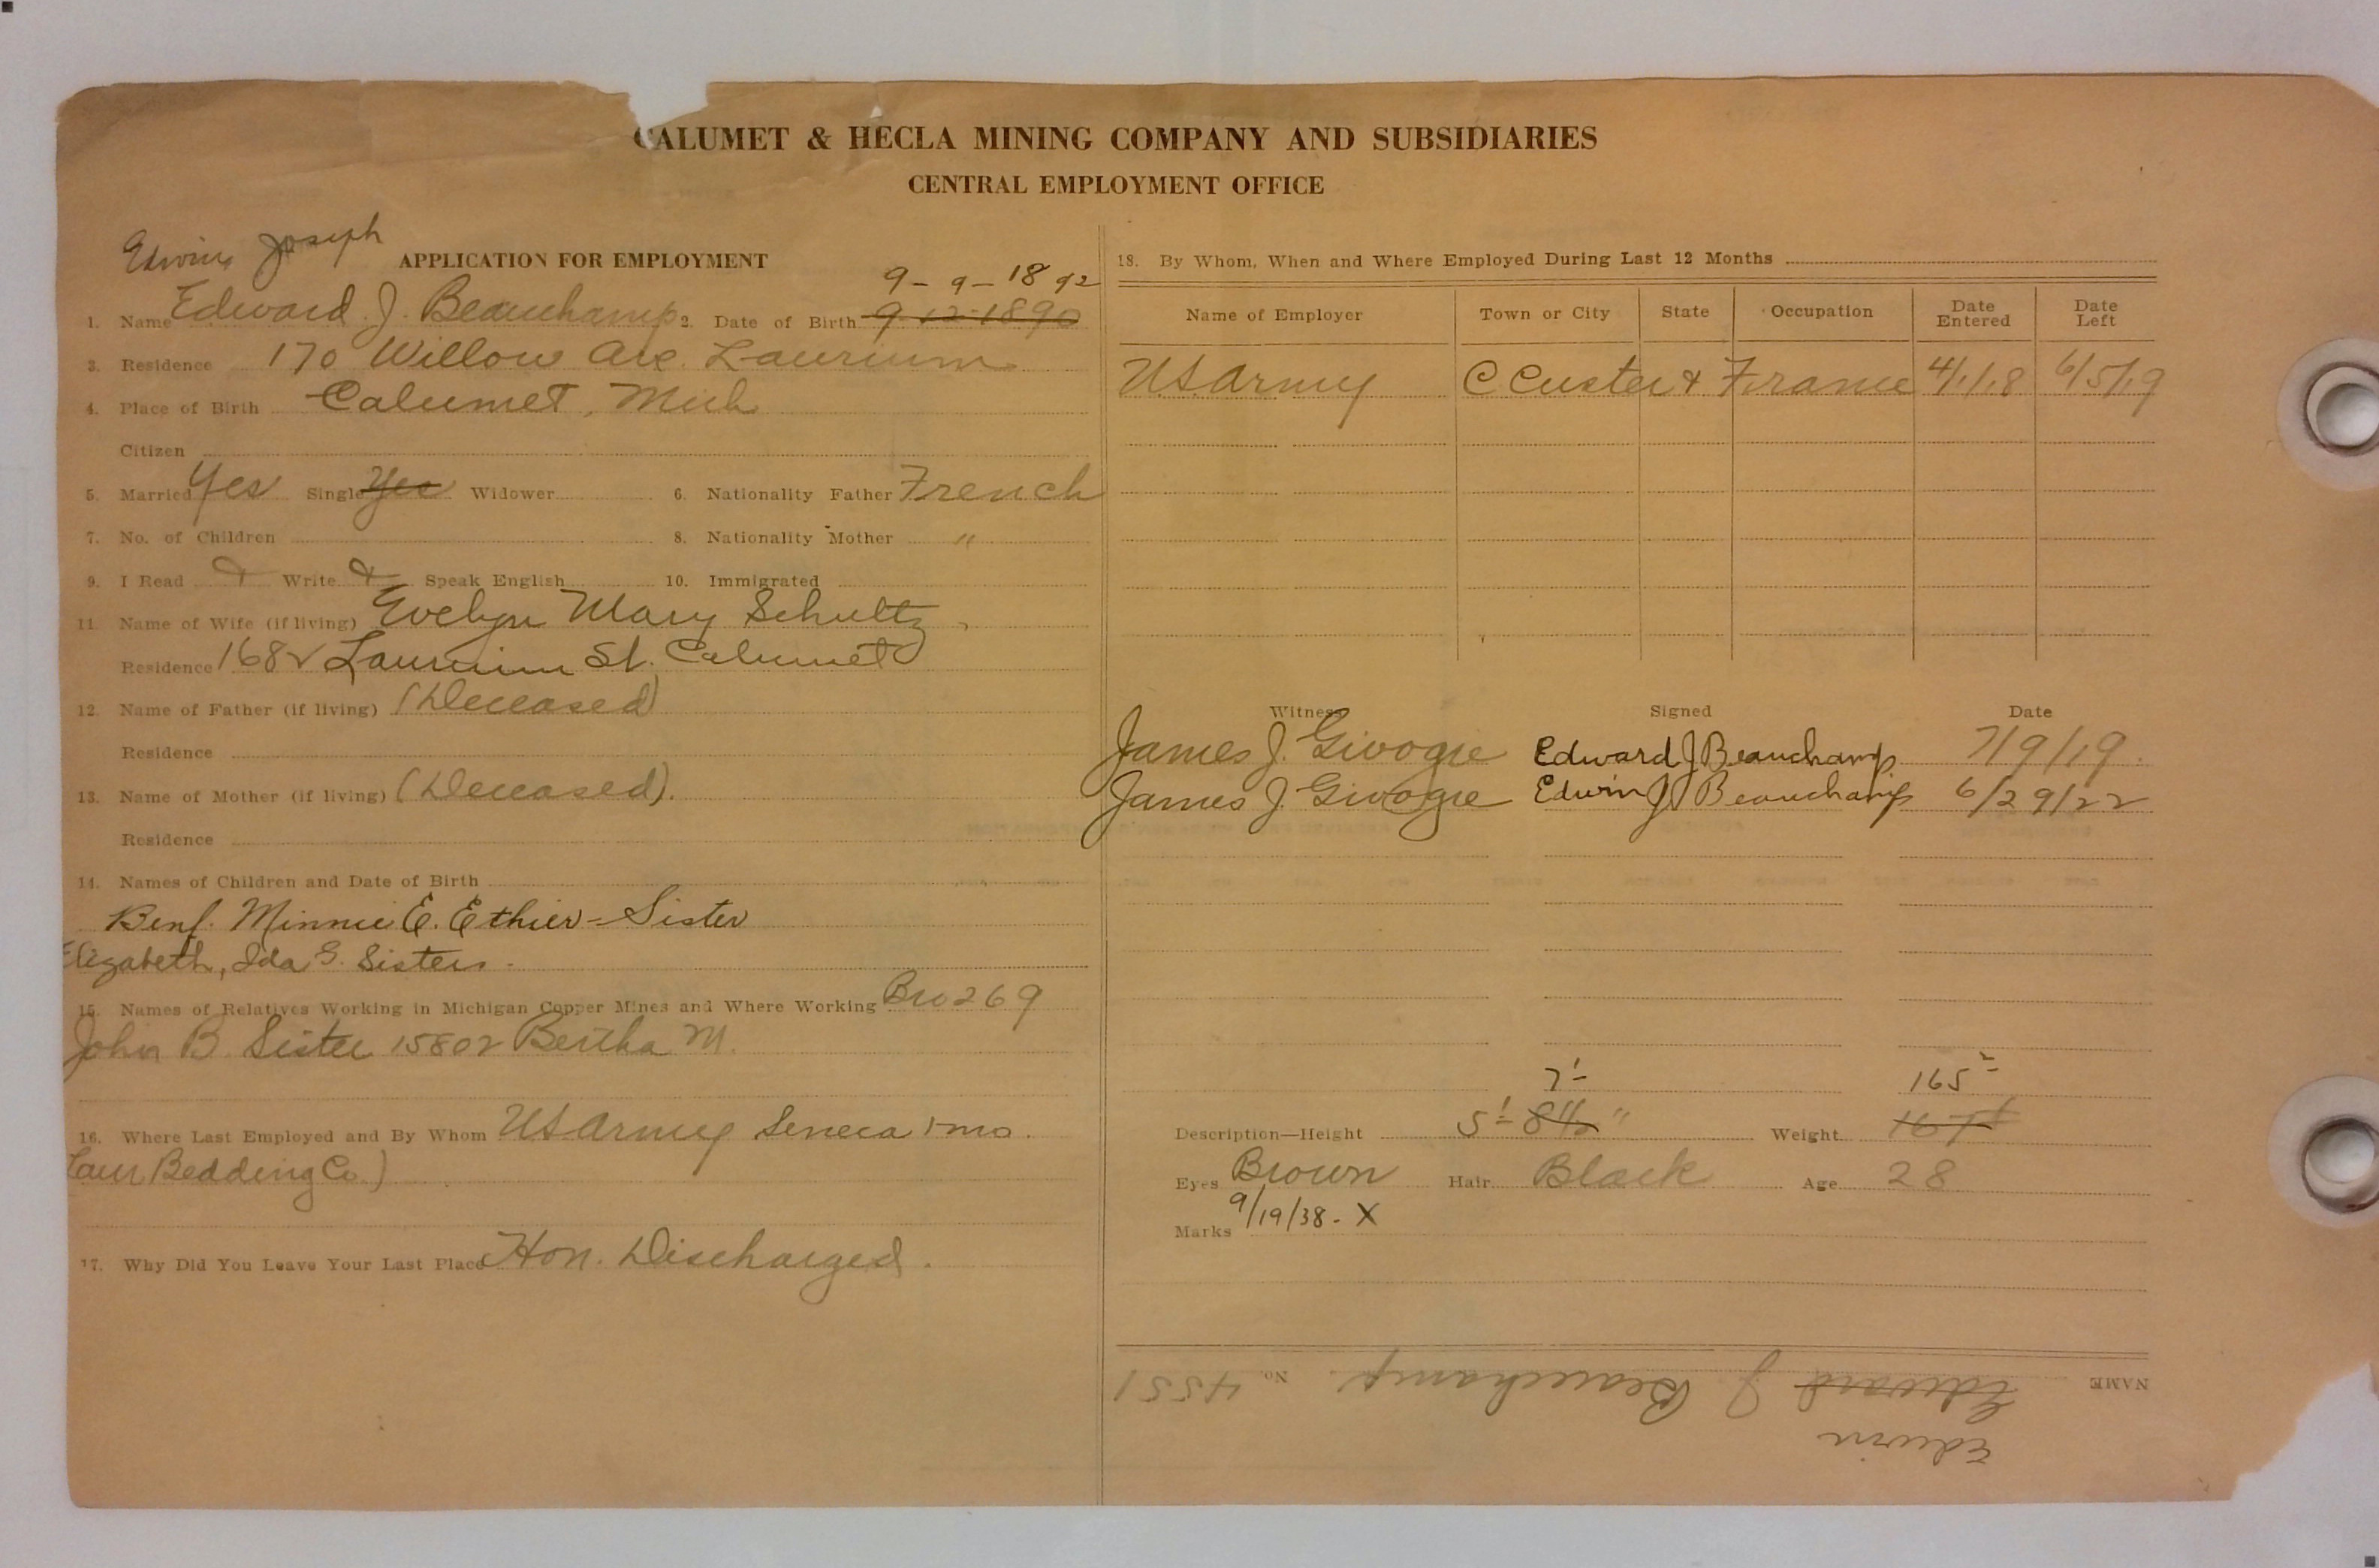 CALUMET & HECLA MINING COMPANY AND SUBSIDIARIES
CENTRAL EMPLOYMENT OFFICE
Edwin Joseph
APPLICATION FOR EMPLOYMENT
9-9-1892
1. Name Edward J. Beauchamp 2. Date of Birth 9-12-1890
3. Residence 170 Willow Ave. Laurium
4. Place of Birth Calumet, Mich
Citizen
5. Married Yes Single Yes Widower 6. Nationality Father French
7. No. of Children 8. Nationality Mother "
9. I Read & Write & Speak English 10. Immigrated
11. Name of Wife (if living) Evelyn Mary Schultz
Residence 1682 Laurium St. Calumet
12. Name of Father (if living) (Deceased)
Residence
13. Name of Mother (if living) (Deceased).
Residence
14. Names of Children and Date of Birth
Benf. Minnie E. Ethier - Sister
Elizabeth, Ida G. Sisters -
15. Names of Relatives Working in Michigan Copper Mines and Where Working Bro 269
John B. Sister 15802 Bertha M.
16. Where Last Employed and By Whom US Army Seneca 1 mo.
Bedding Co)
17. Why Did You Leave Your Last Place Hon. Discharged.
18. By Whom, When and Where Employed During Last 12 Months
Name of Employer Town or City State Occupation Date Entered Date Left
U.S. Army C Custer & France 4/1/18 6/5/19
Witness Signed Date
James J. Givogie Edward J Beauchamp 7/9/19.
James J. Givogie Edwin J Beauchamp 6/29/22
7' 165
Description—Height 5' 8 1/2" Weight 167
Eyes Brown Hair Black Age 28
Marks 9/19/38 - X
NAME Edward J Beauchamp No. 4551
Edwin